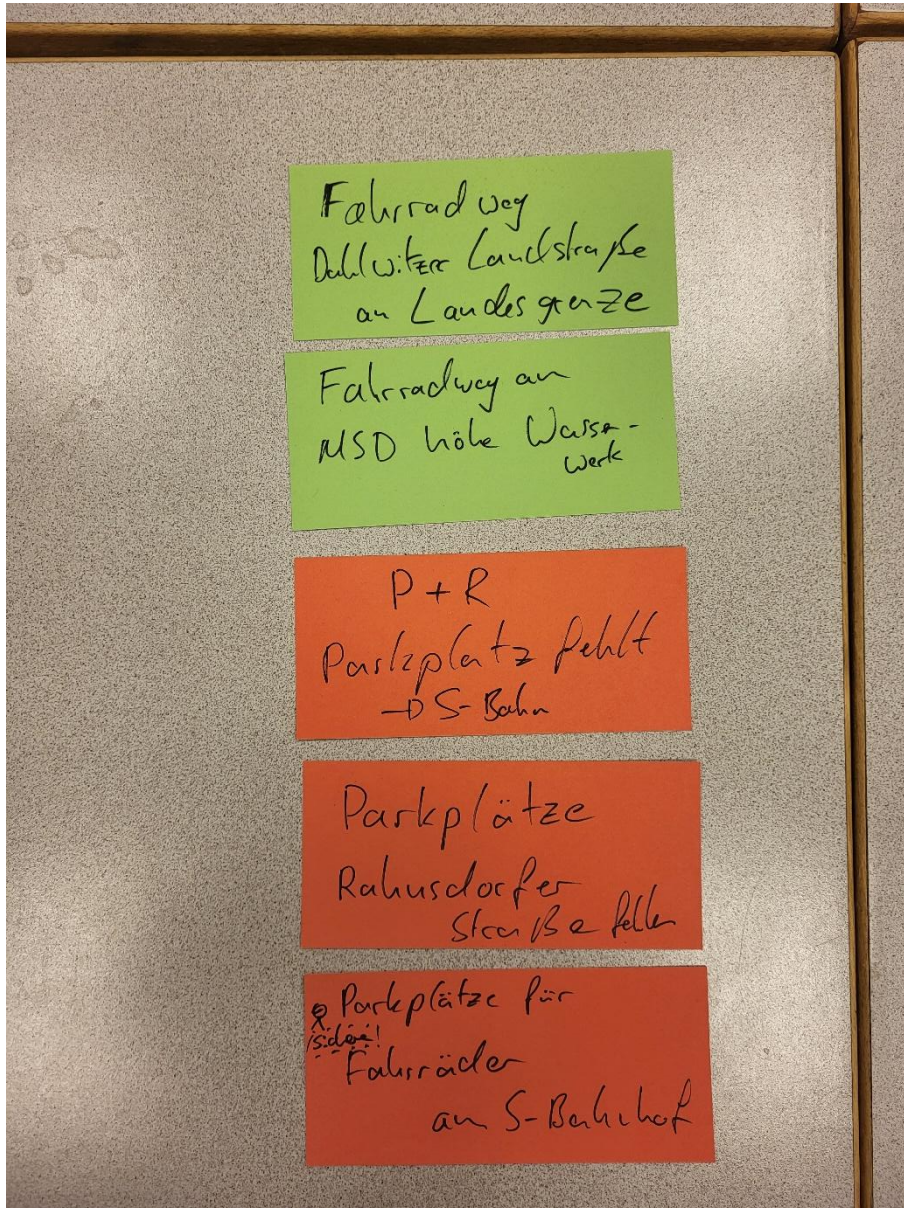 Fahrradweg
Dahlwitzer Landstraße
an Landesgrenze
Fahrradweg an
MSD höhe Wasser-
werk
P + R
Parkplatz fehlt
→ S-Bahn
Parkplätze
Rahnsdorfer
Straße fehlen
Parkplätze für
sichere!
Fahrräder
am S-Bahnhof